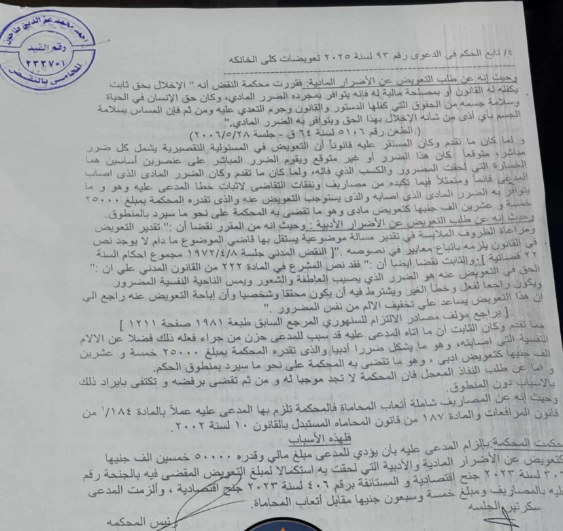 احمد محمد عز الدين طاهر
رقم القيد
٢٣٢٧٠١
المحامى بالنقض
٤/ تابع الحكم فى الدعوى رقم ٩٣ لسنة ٢٠٢٥ تعويضات كلى الخانكه
وحيث إنه عن طلب التعويض عن الأضرار المادية: فقررت محكمة النقض أنه " الإخلال بحق ثابت
يكفله له القانون أو بمصلحة مالية له فإنه يتوافر بمجرده الضرر المادى، وكان حق الإنسان في الحياة
وسلامة جسمه من الحقوق التي كفلها الدستور والقانون وجرم التعدي عليه ومن ثم فإن المساس بسلامة
الجسم بأي أذى من شأنه الإخلال بهذا الحق ويتوافر به الضرر المادى."
(الطعن رقم ٥١٠٦ لسنة ٦٤ ق - جلسة ٢٠٠٦/٥/٢٨).
و لما كان ما تقدم وكان المستقر عليه قانوناً أن التعويض في المسئولية التقصيرية يشمل كل ضرر
مباشر، متوقعاً كان هذا الضرر أو غير متوقع ويقوم الضرر المباشر على عنصرين أساسين هما
الخسارة التي لحقت المضرور والكسب الذي فاته، ولما كان ما تقدم وكان الضرر المادى الذى اصاب
المدعي قائماً ومتمثلاً فيما تكبده من مصاريف ونفقات التقاضى لاثبات خطأ المدعى عليه وهو و ما
يتوافر به الضرر المادى الذى اصابه والذى يستوجب التعويض عنه والذى تقدره المحكمة بمبلغ ٢٥٠٠٠
خمسة و عشرين الف جنيها كتعويض مادى وهو ما تقضى به المحكمة على نحو ما سيرد بالمنطوق.
وحيث إنه عن طلب التعويض عن الأضرار الأدبية : وحيث إنه من المقرر نقضا أن :" تقدير التعويض
ومراعاة الظروف الملابسة في تقدير مسالة موضوعية يستقل بها قاضي الموضوع ما دام لا يوجد نص
في القانون يلزمه باتباع معايير في نصوصه ."[ النقض المدني جلسة ١٩٧٢/٤/٨ مجموع احكام السنة
٢٢ قضائية ] ؛ والثابت نقضا أيضا أن :" فقد نص المشرع في المادة ٢٢٢ من القانون المدني علي ان :"
الحق في التعويض عنه هو الضرر الذي يصيب العاطفة والشعور ويمس الناحية النفسية المضرور
ويكون راجعا لفعل وخطأ الغير ويشترط فيه أن يكون محققا وشخصيا وأن إباحة التعويض عنه راجع الي
ان هذا التعويض يساعد علي تخفيف الالم من نفس المضرور ."
[ يراجع مؤلف مصادر الالتزام للسنهوري المرجع السابق طبعة ١٩٨١ صفحة ١٢١١ ]
مما تقدم وكان الثابت أن ما أتاه المدعى عليه قد سبب للمدعى حزن من جراء فعله ذلك فضلا عن الالام
النفسية التى اصابته، وهو ما يشكل ضررا أدبيا والذى تقدره المحكمة بمبلغ ٢٥٠٠٠ خمسة و عشرين
الف جنيها كتعويض ادبى ، وهو ما تقضى به المحكمة على نحو ما سيرد بمنطوق الحكم.
و اما عن طلب النفاذ المعجل فان المحكمة لا تجد موجبا له و من ثم تقضى برفضه و تكتفى بايراد ذلك
بالاسباب دون المنطوق.
وحيث إنه عن المصاريف شاملة أتعاب المحاماة فالمحكمة تلزم بها المدعى عليه عملاً بالمادة ١/١٨٤ من
قانون المرافعات والمادة ١٨٧ من قانون المحاماه المستبدل بالقانون ١٠ لسنة ٢٠٠٢.
فلهذه الأسباب
حكمت المحكمة بإلزام المدعى عليه بأن يؤدي للمدعى مبلغ مالي وقدره ٥٠٠٠٠ خمسين الف جنيها
كتعويض عن الأضرار المادية والأدبية التى لحقت به استكمالا لمبلغ التعويض المقضى فيه بالجنحة رقم
٣٠٦ لسنة ٢٠٢٣ جنح اقتصادية و المستانفة برقم ٤٠٦ لسنة ٢٠٢٣ جنح اقتصادية ، وألزمت المدعى
عليه بالمصاريف ومبلغ خمسة وسبعون جنيها مقابل أتعاب المحاماة.
سكرتير الجلسه
رئيس المحكمه